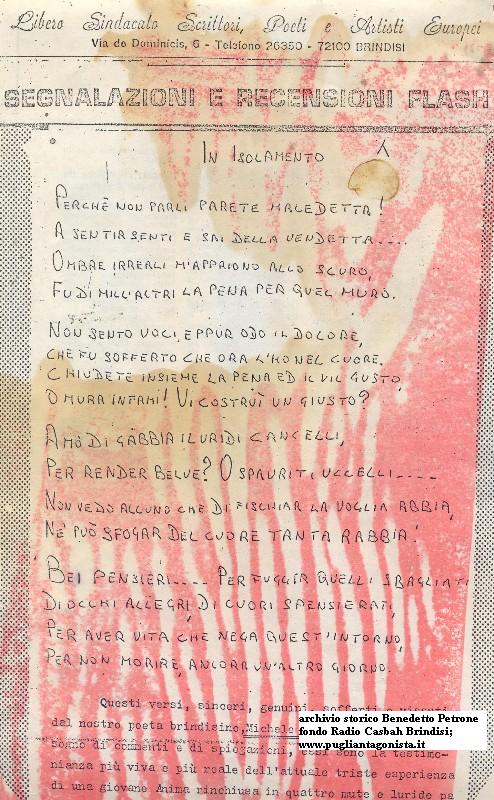 Libero Sindacato Scrittori, Poeti e Artisti Europei
Via de Dominicis, 6 - Telefono 26350 - 72100 BRINDISI
SEGNALAZIONI E RECENSIONI FLASH
IN ISOLAMENTO
PERCHÈ NON PARLI PARETE MALEDETTA!
A SENTIR SENTI E SAI DELLA VENDETTA....
OMBRE IRREALI M'APPAIONO ALLO SCURO,
FU DI MILL'ALTRI LA PENA PER QUEL MURO.
NON SENTO VOCI, EPPUR ODO IL DOLORE,
CHE FU SOFFERTO CHE ORA L'HO NEL CUORE.
CHIUDETE INSIEME LA PENA ED IL VIL GUSTO,
O MURA INFAMI! VI COSTRUÌ UN GIUSTO?
A MÒ DI GABBIA I LURIDI CANCELLI,
PER RENDER BELVE? O SPAURITI UCCELLI....
NON VEDO ALCUNO CHE DI FISCHIAR LA VOGLIA ABBIA,
NÈ PUÒ SFOGAR DEL CUORE TANTA RABBIA!
BEI PENSIERI.... PER FUGGIR QUELLI SBAGLIATI
DI OCCHI ALLEGRI, DI CUORI SPENSIERATI,
PER AVER VITA CHE NEGA QUEST'INTORNO,
PER NON MORIRE, ANCORA UN'ALTRO GIORNO.
Questi versi, sinceri, genuini, sofferti e vissuti
dal nostro poeta brindisino, Michele
archivio storico Benedetto Petrone
fondo Radio Casbah Brindisi;
www.pugliantagonista.it
sogno di commenti e di spiegazioni, essi sono la testimo-
nianza più viva e più reale dell'attuale triste esperienza
di una giovane Anima rinchiusa in quattro mute e luride pa